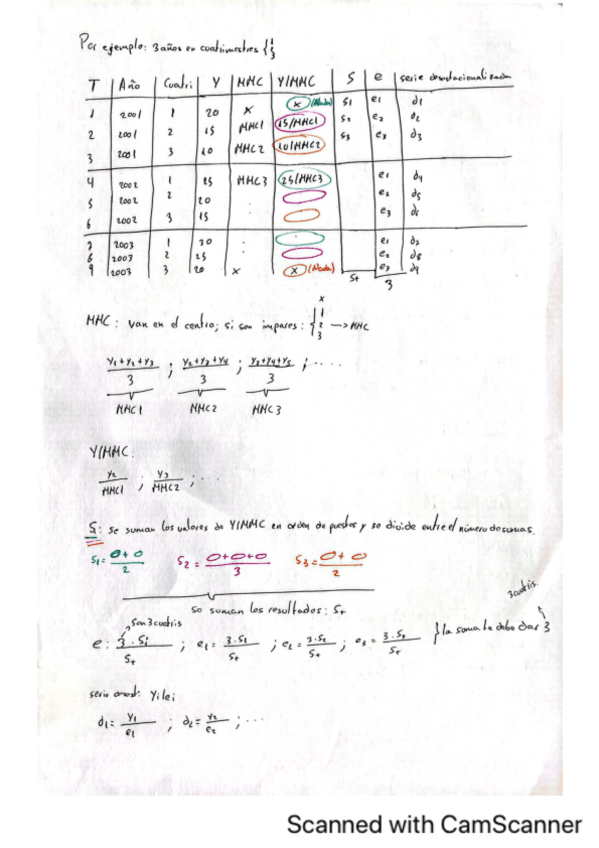 Por ejemplo: 3 años en cuatrimestres { 1 2 3
T | Año | Cuatri | Y | MMC | Y/MMC | S | e | serie desestacionalizada
1 | 2001 | 1 | 20 | x | x (Nada) | S1 | e1 | d1
2 | 2001 | 2 | 15 | MMC1 | 15/MMC1 | S2 | e2 | d2
3 | 2001 | 3 | 10 | MMC2 | 10/MMC2 | S3 | e3 | d3
4 | 2002 | 1 | 25 | MMC3 | 25/MMC3 | e1 | d4
5 | 2002 | 2 | 20 | e2 | d5
6 | 2002 | 3 | 15 | e3 | d6
7 | 2003 | 1 | 30 | e1 | d7
8 | 2003 | 2 | 25 | e2 | d8
9 | 2003 | 3 | 20 | x | x (Nada) | e3 | d9
St 3
MMC: van en el centro; si son impares: { x 1 2 3 → MMC
Y1+Y2+Y3 / 3 ; Y2+Y3+Y4 / 3 ; Y3+Y4+Y5 / 3 ; ....
MMC1 MMC2 MMC3
Y/MMC:
Y2 / MMC1 ; Y3 / MMC2 ; ...
S: Se suman los valores de Y/MMC en orden de puestos y se divide entre el número de sumas.
S1 = 0+0 / 2 S2 = 0+0+0 / 3 S3 = 0+0 / 2
se suman los resultados: St
son 3 cuatris 3 cuatris.
e: 3·Si / St ; e1 = 3·S1 / St ; e2 = 3·S2 / St ; e3 = 3·S3 / St } la suma te debe dar 3
serie desest: Yi/ei
d1 = Y1 / e1 ; d2 = Y2 / e2 ; ...
Scanned with CamScanner